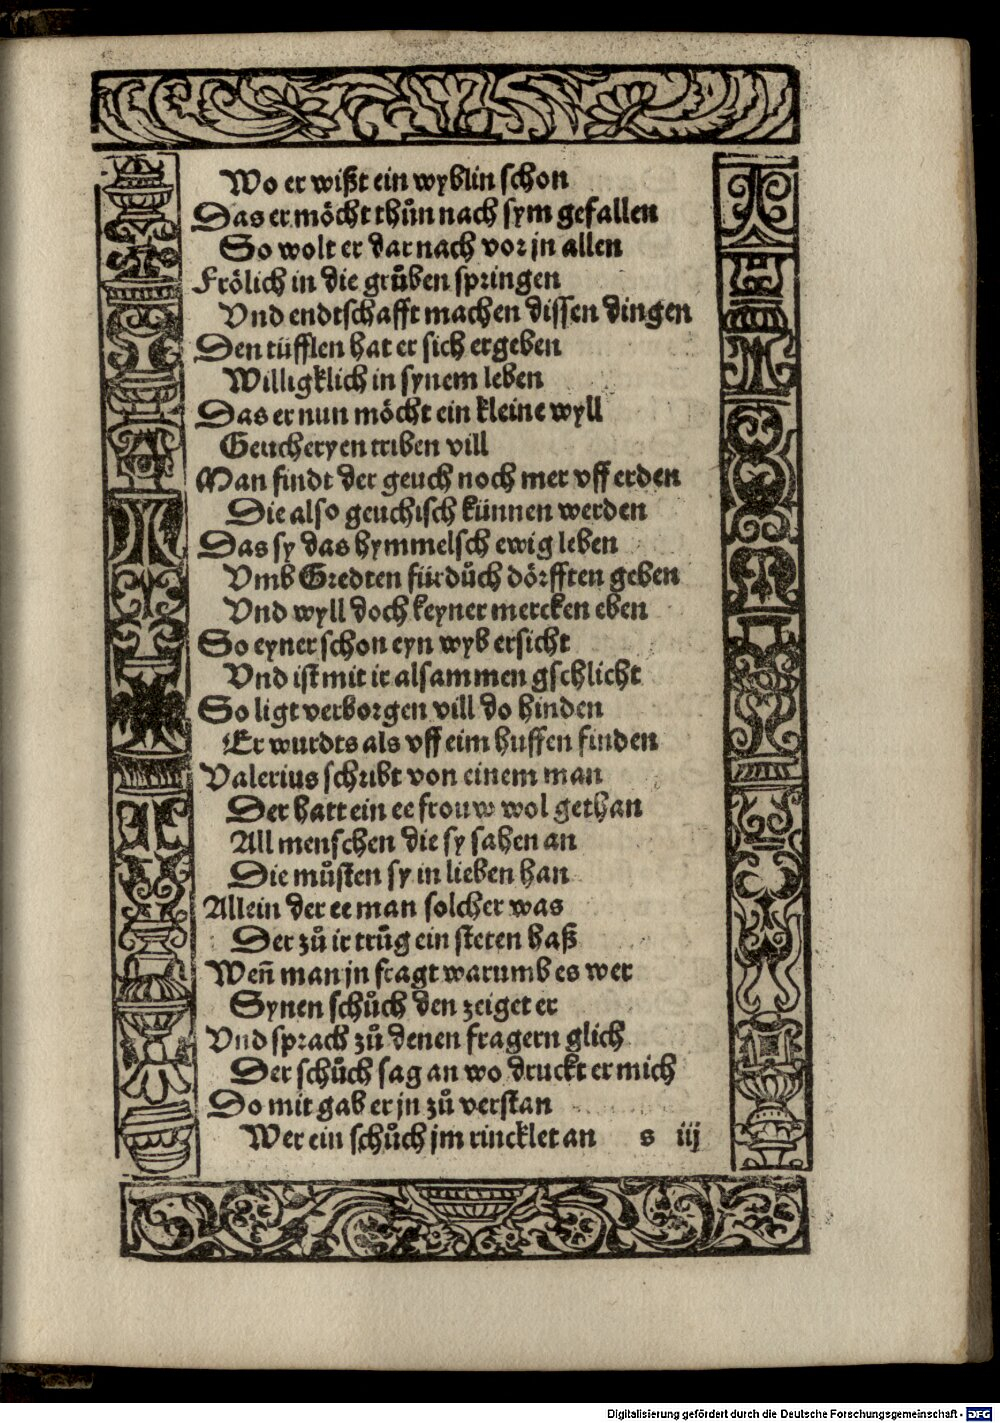 Wo er wißt ein wyblin schon
Das er möcht thůn nach sym gefallen
So wolt er dar nach vor jn allen
Frölich in die grůben springen
Vnd endtschafft machen dissen dingen
Den tüfflen hat er sich ergeben
Willigklich in synem leben
Das er nun möcht ein kleine wyll
Geucheryen triben vill
Man findt der geuch noch mer vff erden
Die also geuchisch künnen werden
Das sy das hymmelsch ewig leben
Vmb Gredten fürdůch dörfften geben
Vnd wyll doch keyner mercken eben
So eyner schon eyn wyb ersicht
Vnd ist mit ir alsammen gschlicht
So ligt verborgen vill do hinden
Er wurdts als vff eim huffen finden
Valerius schribt von einem man
Der hatt ein ee frouw wol gethan
All menschen die sy sahen an
Die můsten sy in lieben han
Allein der ee man solcher was
Der zů ir trůg ein steten haß
Weñ man jn fragt warumb es wer
Synen schůch den zeiget er
Vnd sprach zů denen fragern glich
Der schůch sag an wo druckt er mich
Do mit gab er jn zů verstan
Wer ein schůch jm rincklet an s iij
Digitalisierung gefördert durch die Deutsche Forschungsgemeinschaft - DFG